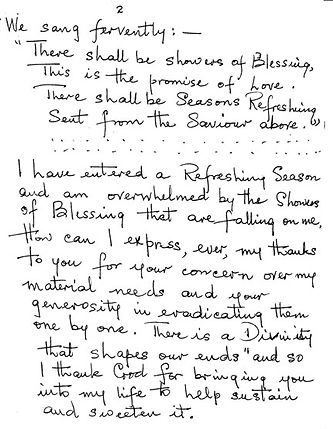 2
We sang fervently: —
"There shall be showers of Blessing,
This is the promise of Love.
There shall be Seasons Refreshing
Sent from the Saviour above."
. . . . . . . . . . . . . . . . . . . . . . . .
I have entered a Refreshing Season
and am overwhelmed by the Showers
of Blessing that are falling on me.
How can I express, ever, my thanks
to you for your concern over my
material needs and your
generosity in eradicating them
one by one. There is a Divinity
that shapes our ends" and so
I thank God for bringing you
into my life to help sustain
and sweeten it.